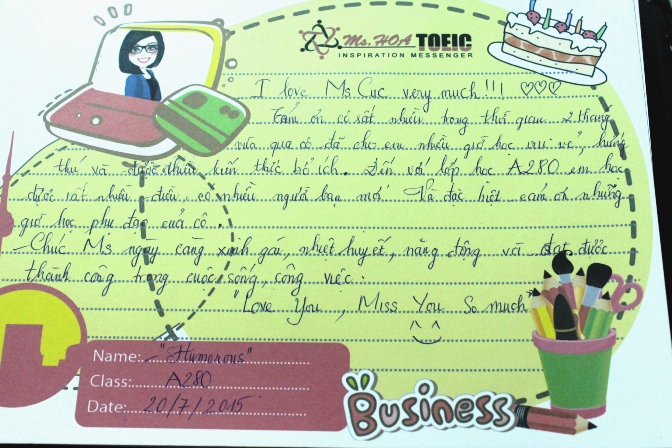 Ms. HOA TOEIC
INSPIRATION MESSENGER
I love Ms Cuc very much!!! ♡♡♡
Cảm ơn cô rất nhiều trong thời gian 2 tháng
vừa qua cô đã cho em nhiều giờ học vui vẻ, hứng
thú và được nhiều kiến thức bổ ích. Đến với lớp học A280 em học
được rất nhiều điều, có nhiều người bạn mới. Và đặc biệt cảm ơn những
giờ học phụ đạo của cô.
- Chúc Ms ngày càng xinh gái, nhiệt huyết, năng động và đạt được
thành công trong cuộc sống, công việc.
"Love You, Miss You So much"
Name: "Humorous"
Class: A280
Date: 20/7/2015
Business